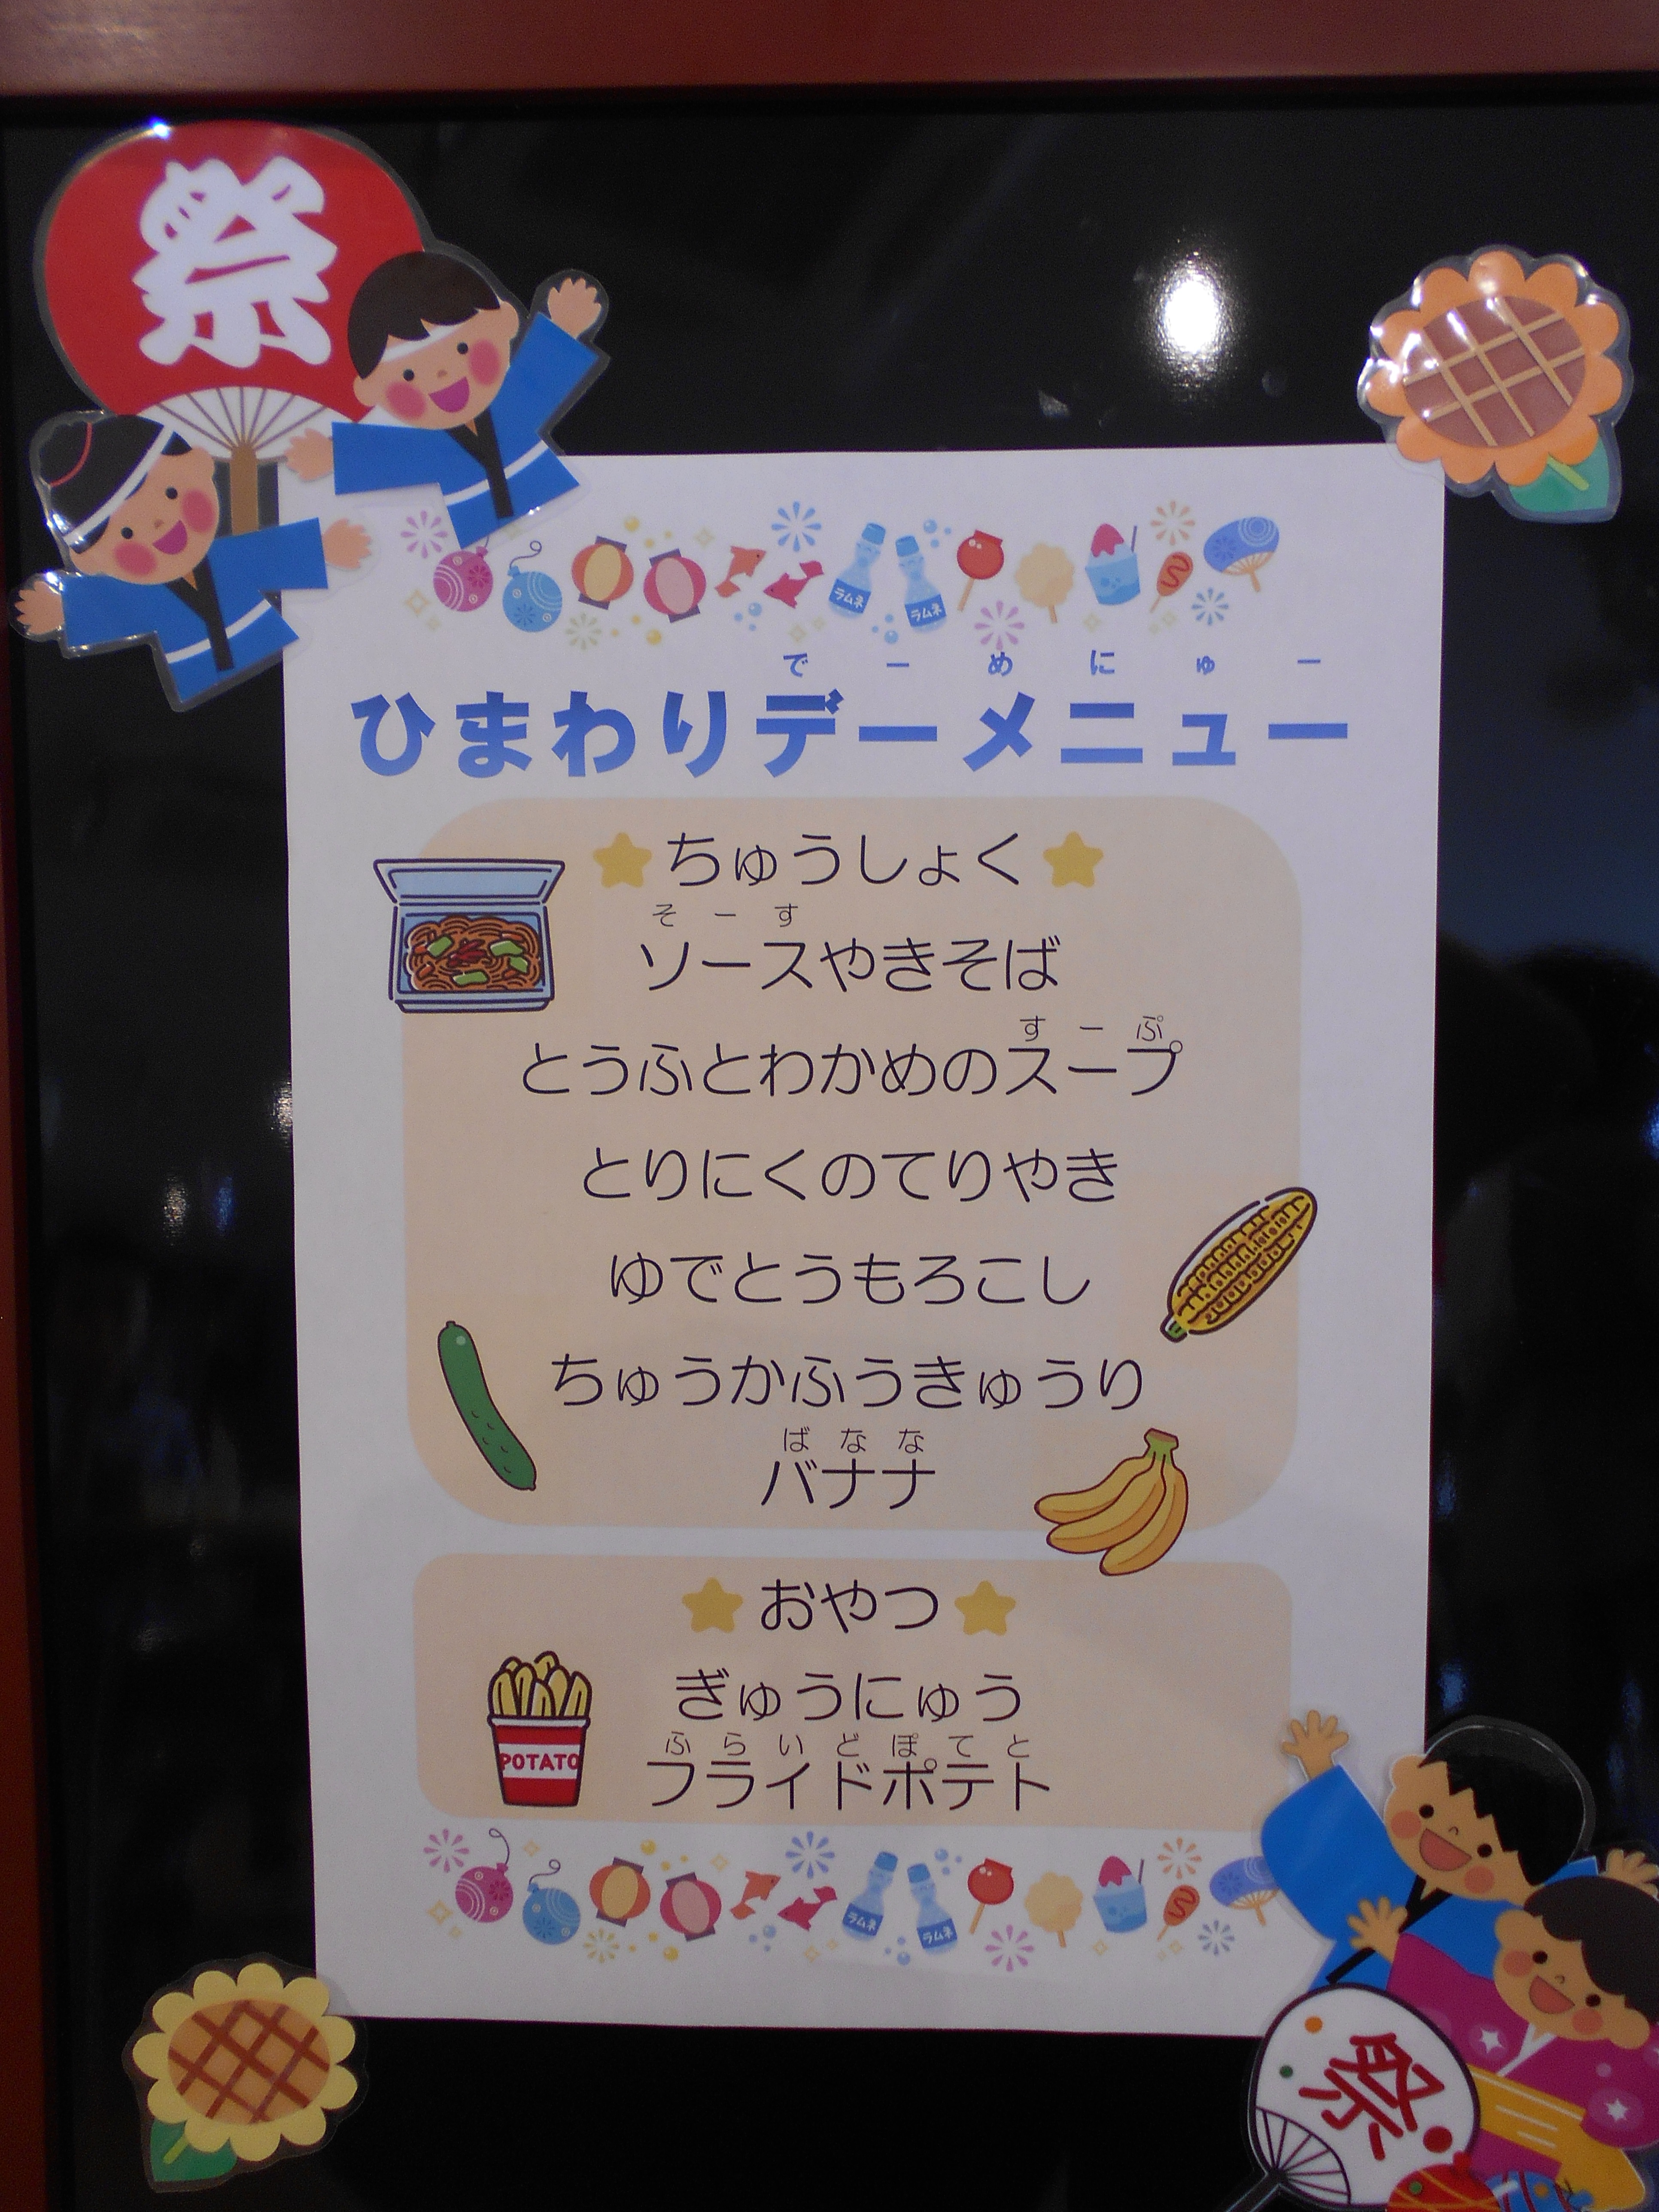 祭
ラムネ ラムネ
でーめにゅー
ひまわりデーメニュー
ちゅうしょく
そーす
ソースやきそば
すーぷ
とうふとわかめのスープ
とりにくのてりやき
ゆでとうもろこし
ちゅうかふうきゅうり
ばなな
バナナ
おやつ
ぎゅうにゅう
ふらいどぽてと
フライドポテト
POTATO
ラムネ ラムネ
祭